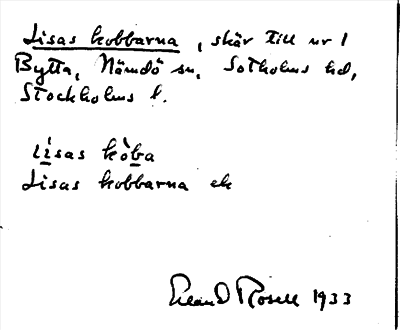 Lisas kobbarna, skär till nr 1
Bytta, Nämdö sn, Sotholms hd,
Stockholms l.
lìsas kòba
Lisas kobbarna ek
Rosell 1933